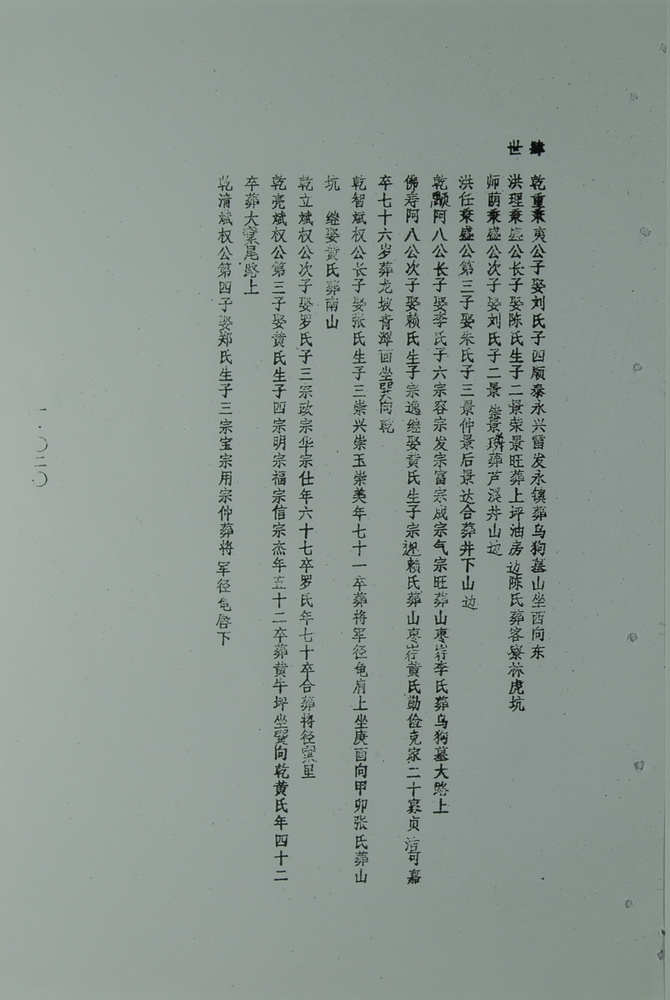 肆世
乾重秉夷公子娶刘氏子四顺泰永兴富发永镇葬乌狗墓山坐西向东
洪理秉盛公长子娶陈氏生子二景荣景旺葬上坪油房边陈氏葬客寮林虎坑
师荫秉盛公次子娶刘氏子二景崇景璘葬芦溪井山边
洪任秉盛公第三子娶朱氏子三景仲景后景达合葬井下山边
乾顕阿八公长子娶李氏子六宗容宗发宗富宗成宗气宗旺葬山枣岩李氏葬乌狗墓大路上
佛寿阿八公次子娶赖氏生子宗逸继娶黄氏生子宗迎赖氏葬山枣岩黄氏勤俭克家二十寡贞洁可嘉
卒七十六岁葬龙坡背潭面坐巽向乾
乾智斌权公长子娶张氏生子三崇兴崇玉崇美年七十一卒葬将军径龟肩上坐庚酉向甲卯张氏葬山
坑 继娶黄氏葬南山
乾立斌权公次子娶罗氏子三宗政宗华宗仕年六十七卒罗氏年七十卒合葬将径里
乾亮斌权公第三子娶黄氏生子四宗明宗福宗信宗杰年五十二卒葬黄牛坪坐巽向乾黄氏年四十二
卒葬大窠尾路上
乾清斌权公第四子娶郑氏生子三宗宝宗用宗仲葬将军径龟唇下
一·〇二〇